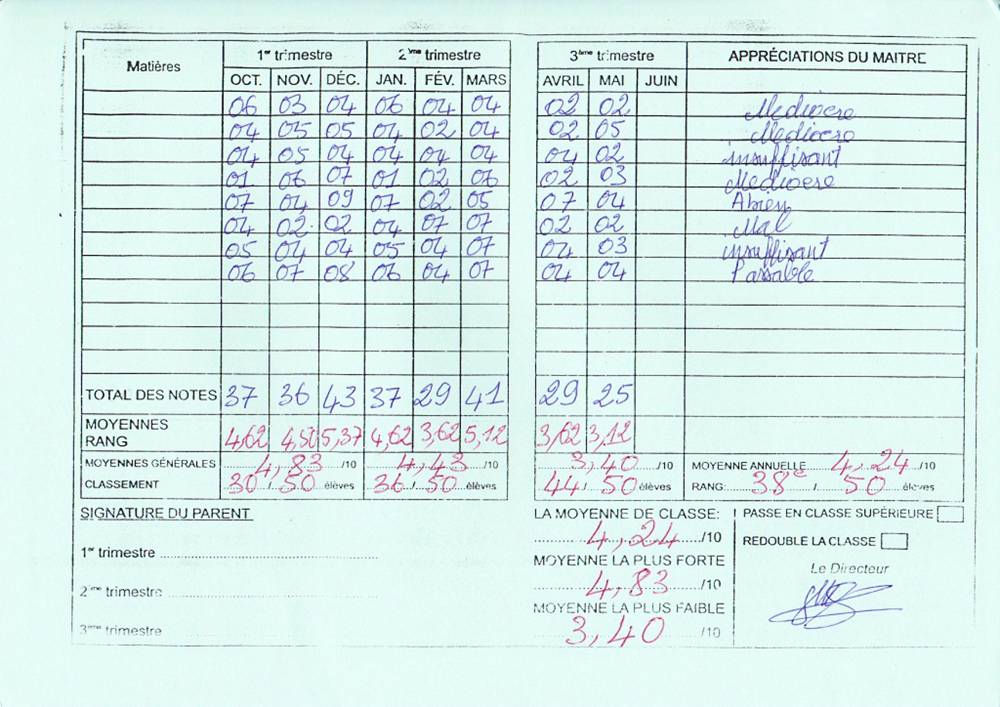 Matières 1er trimestre 2ème trimestre 3ème trimestre APPRÉCIATIONS DU MAITRE
OCT. NOV. DÉC. JAN. FÉV. MARS AVRIL MAI JUIN
06 03 04 06 04 04 02 02 Mediocre
04 05 05 04 02 04 02 05 Mediocre
04 05 04 04 04 04 04 02 insuffisant
01 06 07 01 02 06 02 03 Mediocre
07 04 09 07 02 05 07 04 Abien
04 02 02 04 07 07 02 02 Mal
05 04 04 05 04 07 04 03 insuffisant
06 07 08 06 04 07 04 04 Passable
TOTAL DES NOTES 37 36 43 37 29 41 29 25
MOYENNES
RANG 4,62 4,50 5,37 4,62 3,62 5,12 3,62 3,12
MOYENNES GÉNÉRALES 4,83 /10 4,43 /10 3,40 /10 MOYENNE ANNUELLE 4,24 /10
CLASSEMENT 30 / 50 élèves 36 / 50 élèves 44 / 50 élèves RANG: 38e / 50 élèves
SIGNATURE DU PARENT
1er trimestre
2ème trimestre
3ème trimestre
LA MOYENNE DE CLASSE:
4,24 /10
MOYENNE LA PLUS FORTE
4,83 /10
MOYENNE LA PLUS FAIBLE
3,40 /10
PASSE EN CLASSE SUPÉRIEURE
REDOUBLE LA CLASSE
Le Directeur